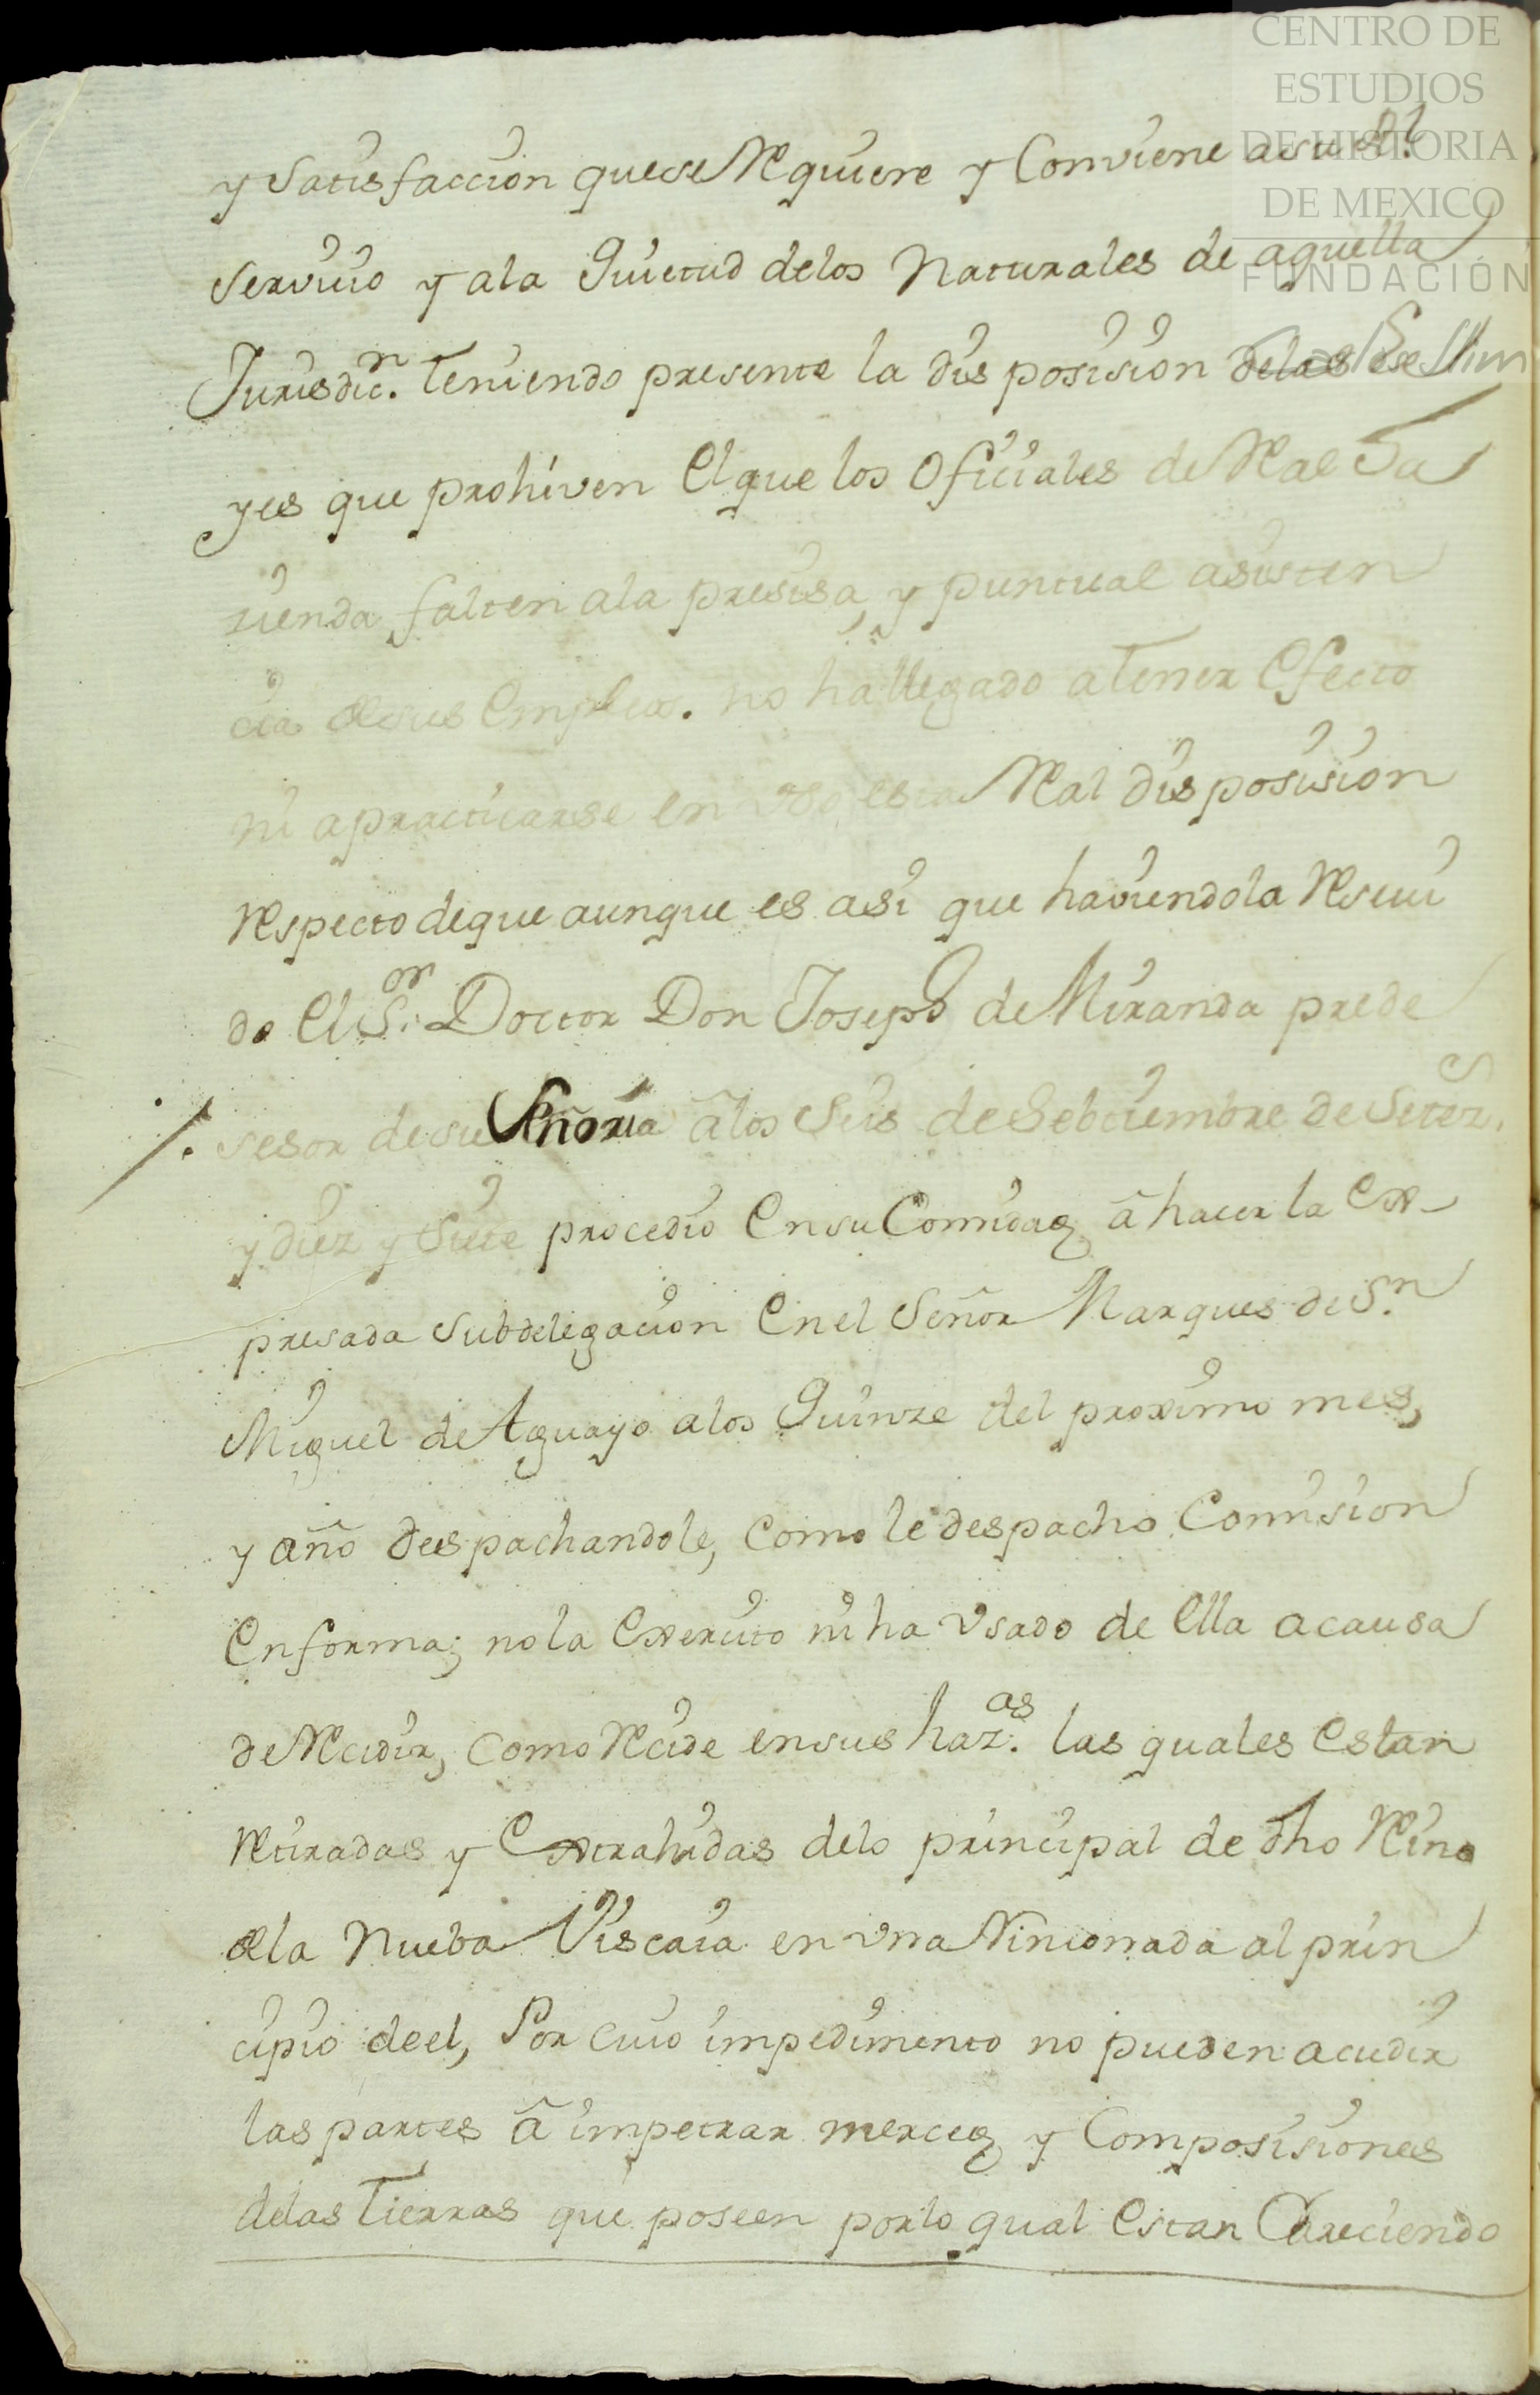 CENTRO DE
ESTUDIOS
DE HISTORIA
DE MEXICO
FUNDACIÓN
y Satisfaccion que se Requiere y Conviene a su Rl.
Servicio y ala Quietud delos Naturales de aquella
Jurisdicn. teniendo presente la disposision delas
yes que prohiven El que los Oficiales de Real Ja
zienda falten ala presisa, y puntual asisten
cia de sus Empleos. no ha llegado a tener Efecto
ni apracticarse en Vso, esta Real disposision
Respecto de que aunque es asi que haviendola Resivi
do El Sor. Doctor Don Joseph de Miranda prede
sesor de su Señoria â los Seis de Sebtiembre de Setezs.
y diez y Siete procedio En su Comidad â hacer la Ex-
presada Subdelegacion En el Señor Marques de Sn.
Miguel de Aguayo a los Quinze del proximo mes,
y año despachandole, Como le despacho Comision
En forma; no la Exercito ni ha Vsado de Ella a causa
de Recidir, como Recide en sus hazas. las quales Estan
Retiradas y Extrahidas delo principal de dho Reino
de la Nueba Viscaia en vna Rinconada al prin
cipio de el, Por cuio impedimento no pueden acudir
las partes â impetrar merced y Composisiones
delas Tierras que poseen por lo qual Estan Careciendo